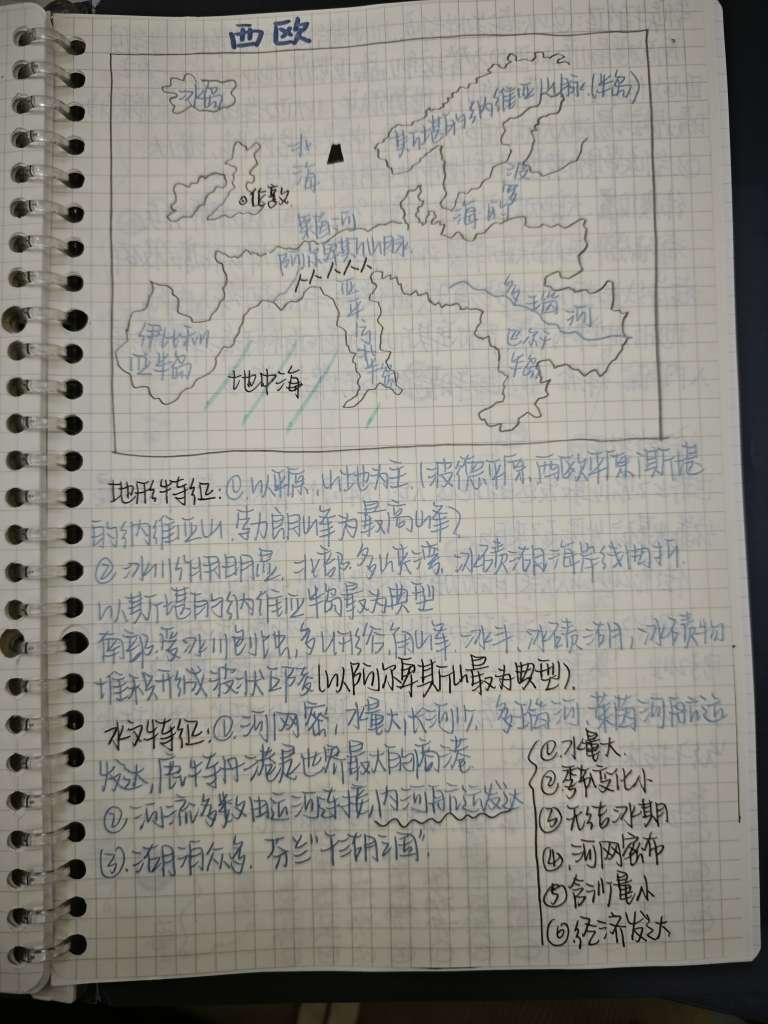 西欧
冰岛
斯堪的纳维亚山脉(半岛)
北海
波罗的海
伦敦
莱茵河
阿尔卑斯山脉
多瑙河
伊比利亚半岛
亚平宁半岛
巴尔干半岛
地中海
地形特征:①以平原,山地为主.(波德平原,西欧平原,斯堪
的纳维亚山,勃朗峰为最高峰)
②冰川作用明显.北部:多峡湾,冰碛湖,海岸线曲折.
以斯堪的纳维亚半岛最为典型
南部:受冰川刨蚀,多U形谷,角峰.冰斗.冰碛湖,冰碛物
堆积形成波状丘陵(以阿尔卑斯山最为典型).
水文特征:①.河网密,水量大,长河少.多瑙河.莱茵河航运
发达,鹿特丹港是世界最大的商港
②河流多数由运河连接,内河航运发达
(3).湖泊众多.芬兰"千湖之国".
①.水量大.
②季节变化小
③无结冰期
④.河网密布
⑤含沙量小
⑥.经济发达